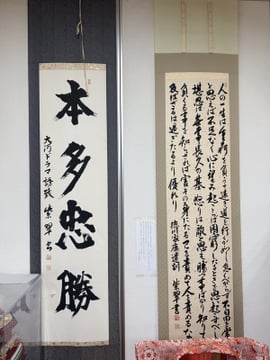 人の一生は重荷を負うて遠き道を行くが如し急ぐべからず不自由を常と
思えば不足なし心に望み起こらば困窮したるときを思い起すべし
堪忍は無事長久の基怒りは敵と思え勝つ事ばかり知りて
負くる事を知らざれば害その身に至る己を責めて人を責めるな
及ばざるは過ぎたるより優れり 徳川家康遺訓 紫翠書
本多忠勝
大河ドラマ 紫翠書